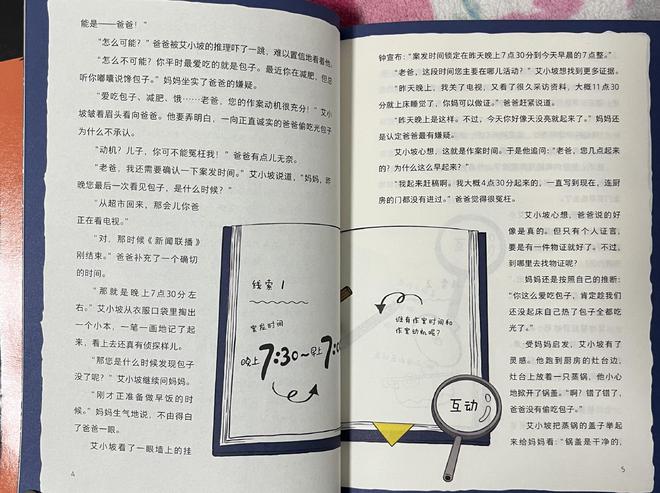 能是——爸爸！”
“怎么可能？”爸爸被艾小坡的推理吓了一跳，难以置信地看着他。
“怎么不可能？你平时最爱吃的就是包子。最近你在减肥，但总
听你嘟囔说馋包子。”妈妈坐实了爸爸的嫌疑。
“爱吃包子、减肥、饿……老爸，您的作案动机很充分！”艾小
坡皱着眉头看向爸爸。他要弄明白，一向正直诚实的爸爸偷吃光包子
为什么不承认。
“动机？儿子，你可不能冤枉我！”爸爸有点儿无奈。
“老爸，我还需要确认一下案发时间。”艾小坡说道，“妈妈，昨
晚您最后一次看见包子，是什么时候？”
“从超市回来，那会儿你爸
正在看电视。”
“对，那时候《新闻联播》
刚结束。”爸爸补充了一个确切
的时间。
“那就是晚上7点30分左
右。”艾小坡从衣服口袋里掏出
一个小本，一笔一画地记了起
来，看上去还真有侦探样儿。
“那您是什么时候发现包子
没了呢？”艾小坡继续问妈妈。
“刚才正准备做早饭的时
候。”妈妈生气地说，不由得白
了爸爸一眼。
艾小坡看了一眼墙上的挂
4
线索1
案发时间
晚上7:30~早上7:0
钟宣布：“案发时间锁定在昨天晚上7点30分到今天早晨的7点整。”
“老爸，这段时间您主要在哪儿活动？”艾小坡想找到更多证据。
“昨天晚上，我关了电视，又看了很久采访资料，大概11点30
分就上床睡觉了，你妈可以做证。”爸爸赶紧说道。
“昨天晚上是这样。不过，今天你好像天没亮就起来了。”妈妈还
是认定爸爸最有嫌疑。
艾小坡心想，这就是作案时间。于是他追问：“老爸，您几点起来
的？为什么这么早起来？”
“我起来赶稿啊。我大概4点30分起来的，一直写到现在，连厨
房的门都没有进过。”爸爸觉得很冤枉。
艾小坡心想，爸爸说的好
像是真的。但只有个人证言，
要是有一件物证就好了。不过，
到哪里去找物证呢？
妈妈还是按照自己的推断：
“你这么爱吃包子，肯定趁我们
还没起床自己热了包子全都吃
光了。”
受妈妈启发，艾小坡有了
灵感。他跑到厨房的灶台边，
灶台上放着一只蒸锅，他小心
地掀开了锅盖。“啊？错了错了，
爸爸没有偷吃包子。”
艾小坡把蒸锅的盖子举起
来给妈妈看：“锅盖是干净的，
谁有作案时间和
作案动机呢？
互动
5